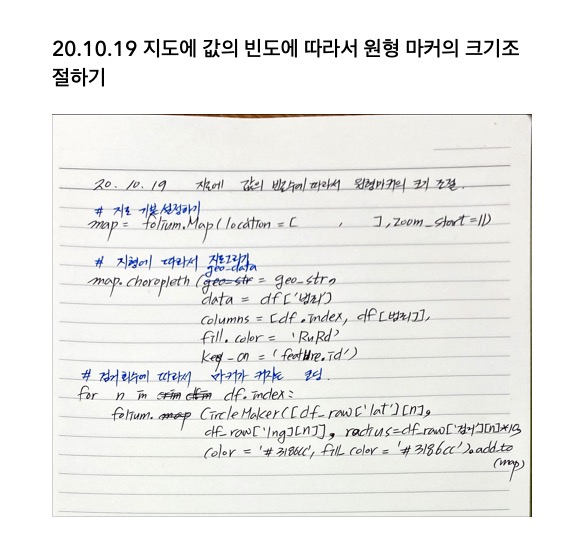 20.10.19 지도에 값의 빈도에 따라서 원형 마커의 크기조
절하기
20. 10. 19 지도에 값의 빈도수에 따라서 원형마커의 크기 조절.
# 지도 기본설정하기
map = folium.Map(location = [ , ], zoom_start=11)
# 지형에 따라서 지도그리기
geo-data
map.choropleth(geo_str = geo_str,
data = df['범죄']
columns = [df.index, df[범죄]],
fill.color = 'RuRd'
key_on = 'feature.id')
# 검거회수에 따라서 마커가 커지는 코딩.
for n in df.index:
folium. map CircleMaker([df_raw['lat'][n],
df_raw['lng][n]], radius=df_raw['검거'][n]*10
color = '#3186cc', fill color = '#3186cc').add.to
(map)